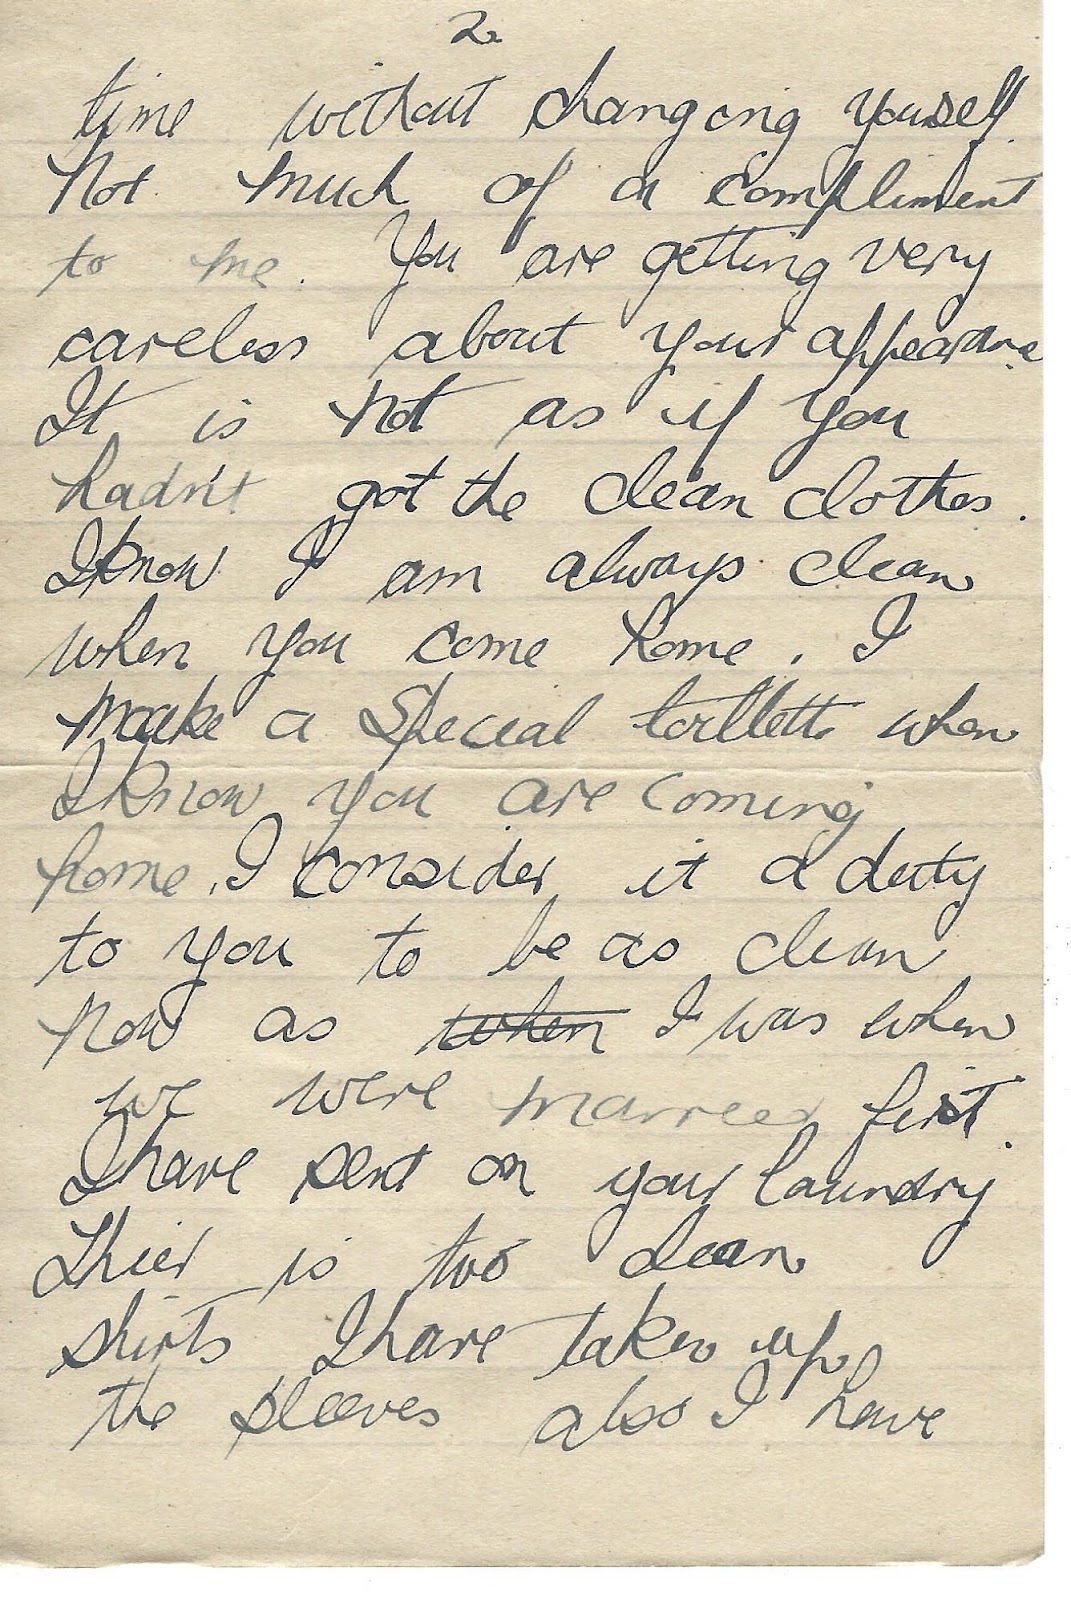 2
time without changing youself.
Not much of a compliment
to me. You are getting very
careless about your appearance
It is not as if you
hadn't got the clean clothes.
I know I am always clean
when you come home. I
make a special toillette when
I know you are coming
home. I consider it a duty
to you to be as clean
now as when I was when
we were married first.
I have sent on your laundry
Thier is two clean
shirts I have taken up
the sleeves also I have